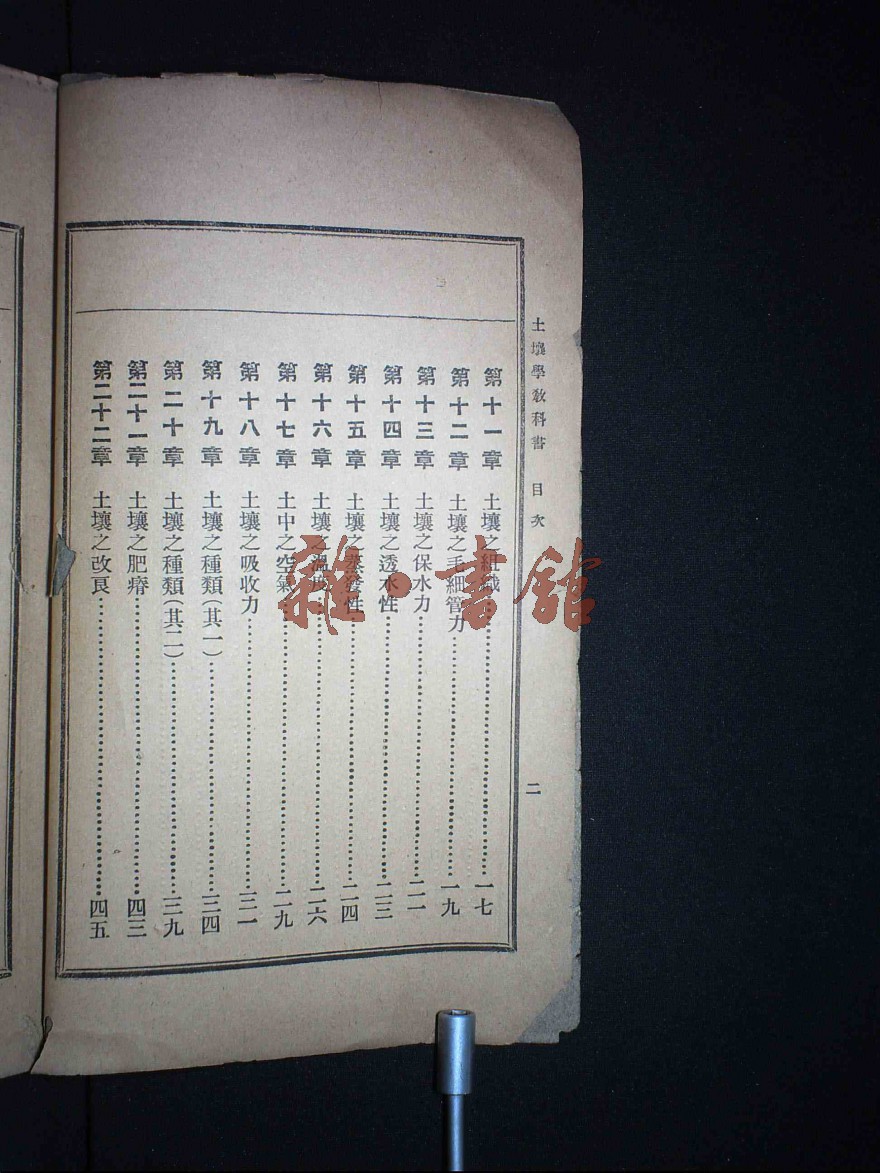 土壤學敎科書　目次　二
第十一章　土壤之組織…………一七
第十二章　土壤之毛細管力…………一九
第十三章　土壤之保水力…………二一
第十四章　土壤之透水性…………二三
第十五章　土壤之蒸發性…………二四
第十六章　土壤之溫度…………二六
第十七章　土中之空氣…………二九
第十八章　土壤之吸收力…………三一
第十九章　土壤之種類(其一)…………三四
第二十章　土壤之種類(其二)…………三九
第二十一章　土壤之肥瘠…………四三
第二十二章　土壤之改良…………四五
雜·書館